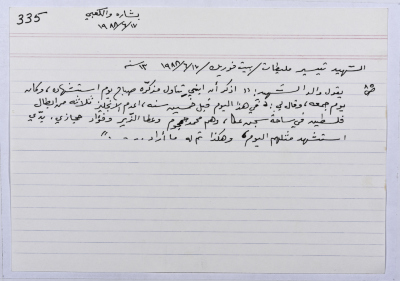 335
بشاره والكعبي
١٩٨٨/٦/١٧
الشهيد تيسير مليطات / بيت فوريك / ١٩٨٨/٦/١٧ ١٣ سنة
يقول والد الشهيد: "اذكر أن ابني تناول مذكره صباح يوم استشهاده، وكان
يوم جمعه، وقال لي: في هذا اليوم قبل خمسين سنه، اعدم الانجليز ثلاثة من ابطال
فلسطين في ساحة سجن عكا، وهم محمد جمجوم وعطا الزير وفؤاد حجازي. بدّي
استشهد مثلهم اليوم، وهكذا تم له ما أراد...."